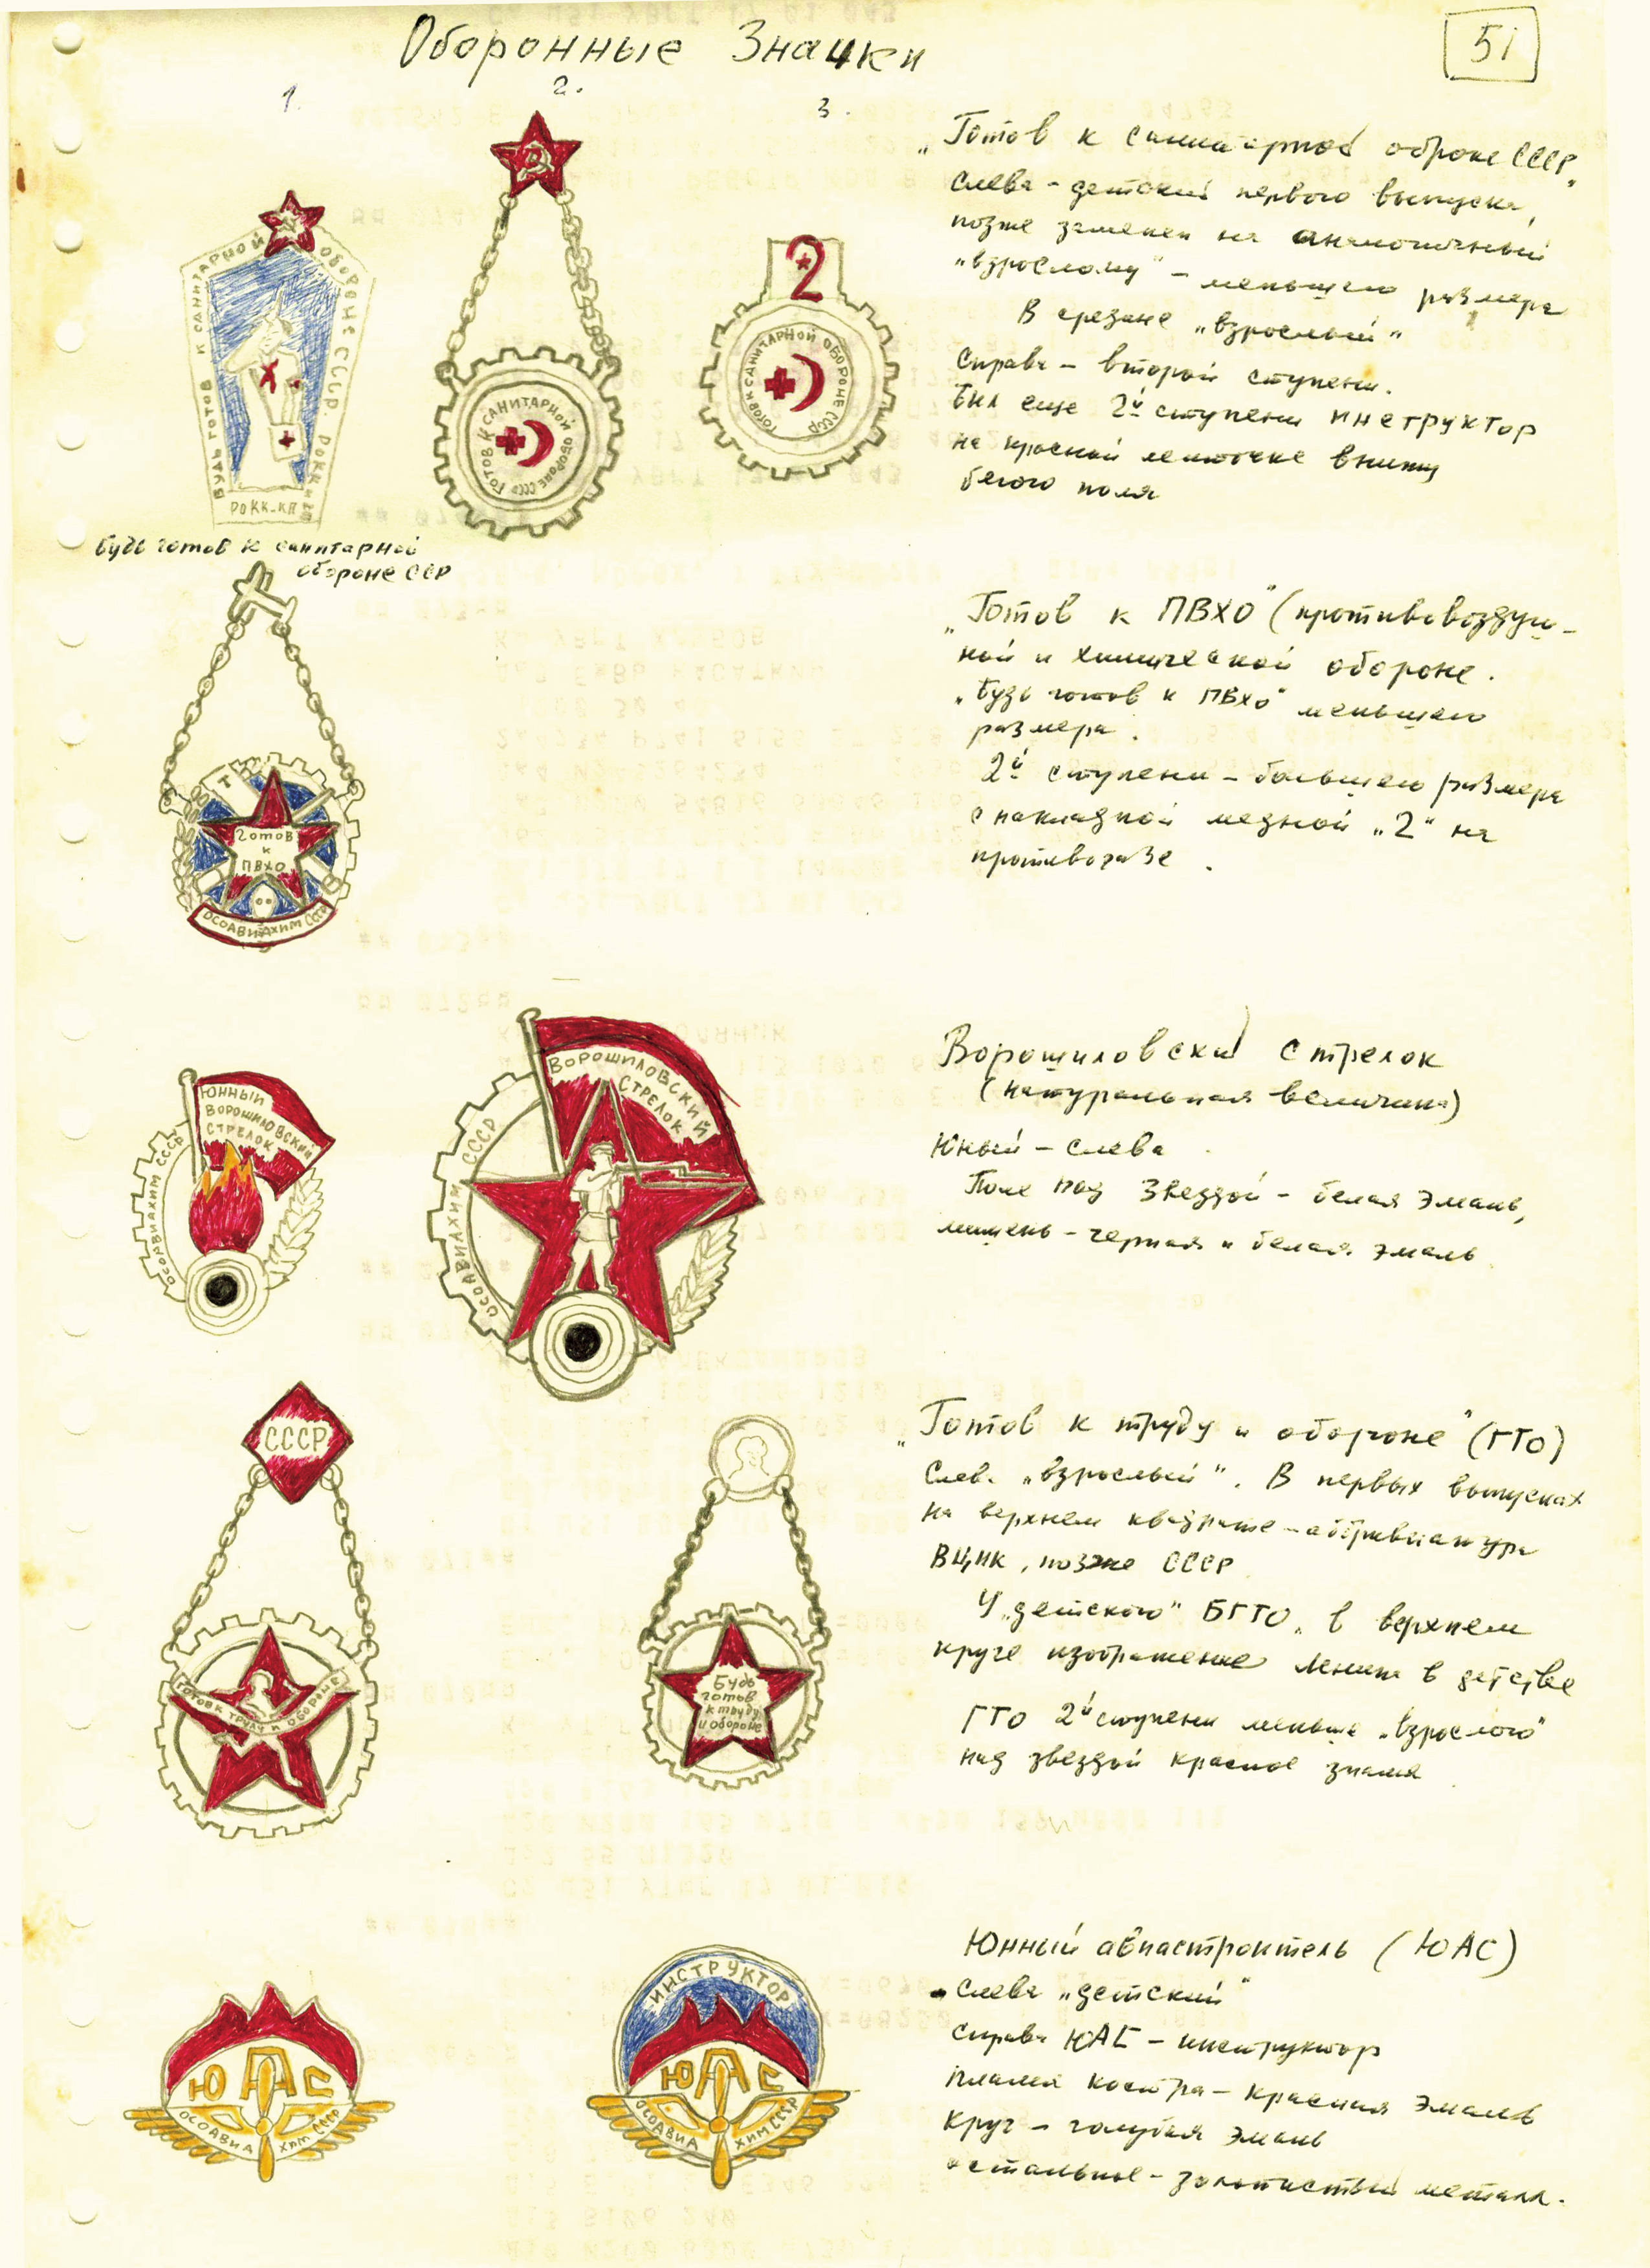 Оборонные Значки
51
1.
2.
3.
„Готов к санитарной оброне СССР"
Слева - детский первого выпуска,
позже заменен на аналогичный
„взрослому" - меньшего размера
В средине „взрослый"
Справа - второй ступени.
Был еще 2й ступени инструктор
на красной ленточке внизу
белого поля
БУДЬ ГОТОВ К САНИТАРНОЙ ОБОРОНЕ СССР РОКК и КП
РОКК-КП
ГОТОВ К САНИТАРНОЙ ОБОРОНЕ СССР
2
ГОТОВ К САНИТАРНОЙ ОБОРОНЕ СССР
Будь готов к санитарной
обороне ССР
„Готов к ПВХО" (противовоздуш-
ной и химической обороне.
„Будь готов к ПВХО" меньшего
размера.
2й ступени - большего размера
с накладной медной „2" на
противогазе.
Готов
к
ПВХО
ОСОАВИАХИМ СССР
Ворошиловский стрелок
(натуральная величина)
Юный - слева
Поле под звездой - белая эмаль,
мишень - черная и белая эмаль
ЮННЫЙ
ВОРОШИЛОВСКИЙ
СТРЕЛОК
ОСОАВИАХИМ СССР
ВОРОШИЛОВСКИЙ
СТРЕЛОК
ОСОАВИАХИМ СССР
„Готов к труду и обороне" (ГТО)
Слева „взрослый". В первых выпусках
на верхнем квадрате - аббревиатура
ВЦИК, позже СССР
У „детского" БГТО „ в верхнем
круге изображение Ленина в детстве
ГТО 2й ступени меньше „взрослого"
над звездой красное знамя
СССР
ГОТОВ К ТРУДУ И ОБОРОНЕ
Будь
готов
к труду
и обороне
Юнный авиастроитель (ЮАС)
Слева „детский"
Справа ЮАС - инструктор
Пламя костра - красная эмаль
Круг - голубая эмаль
остальное - золотистый металл.
ЮАС
ОСОАВИА ХИМ СССР
ИНСТРУКТОР
ЮАС
ОСОАВИА ХИМ.СССР